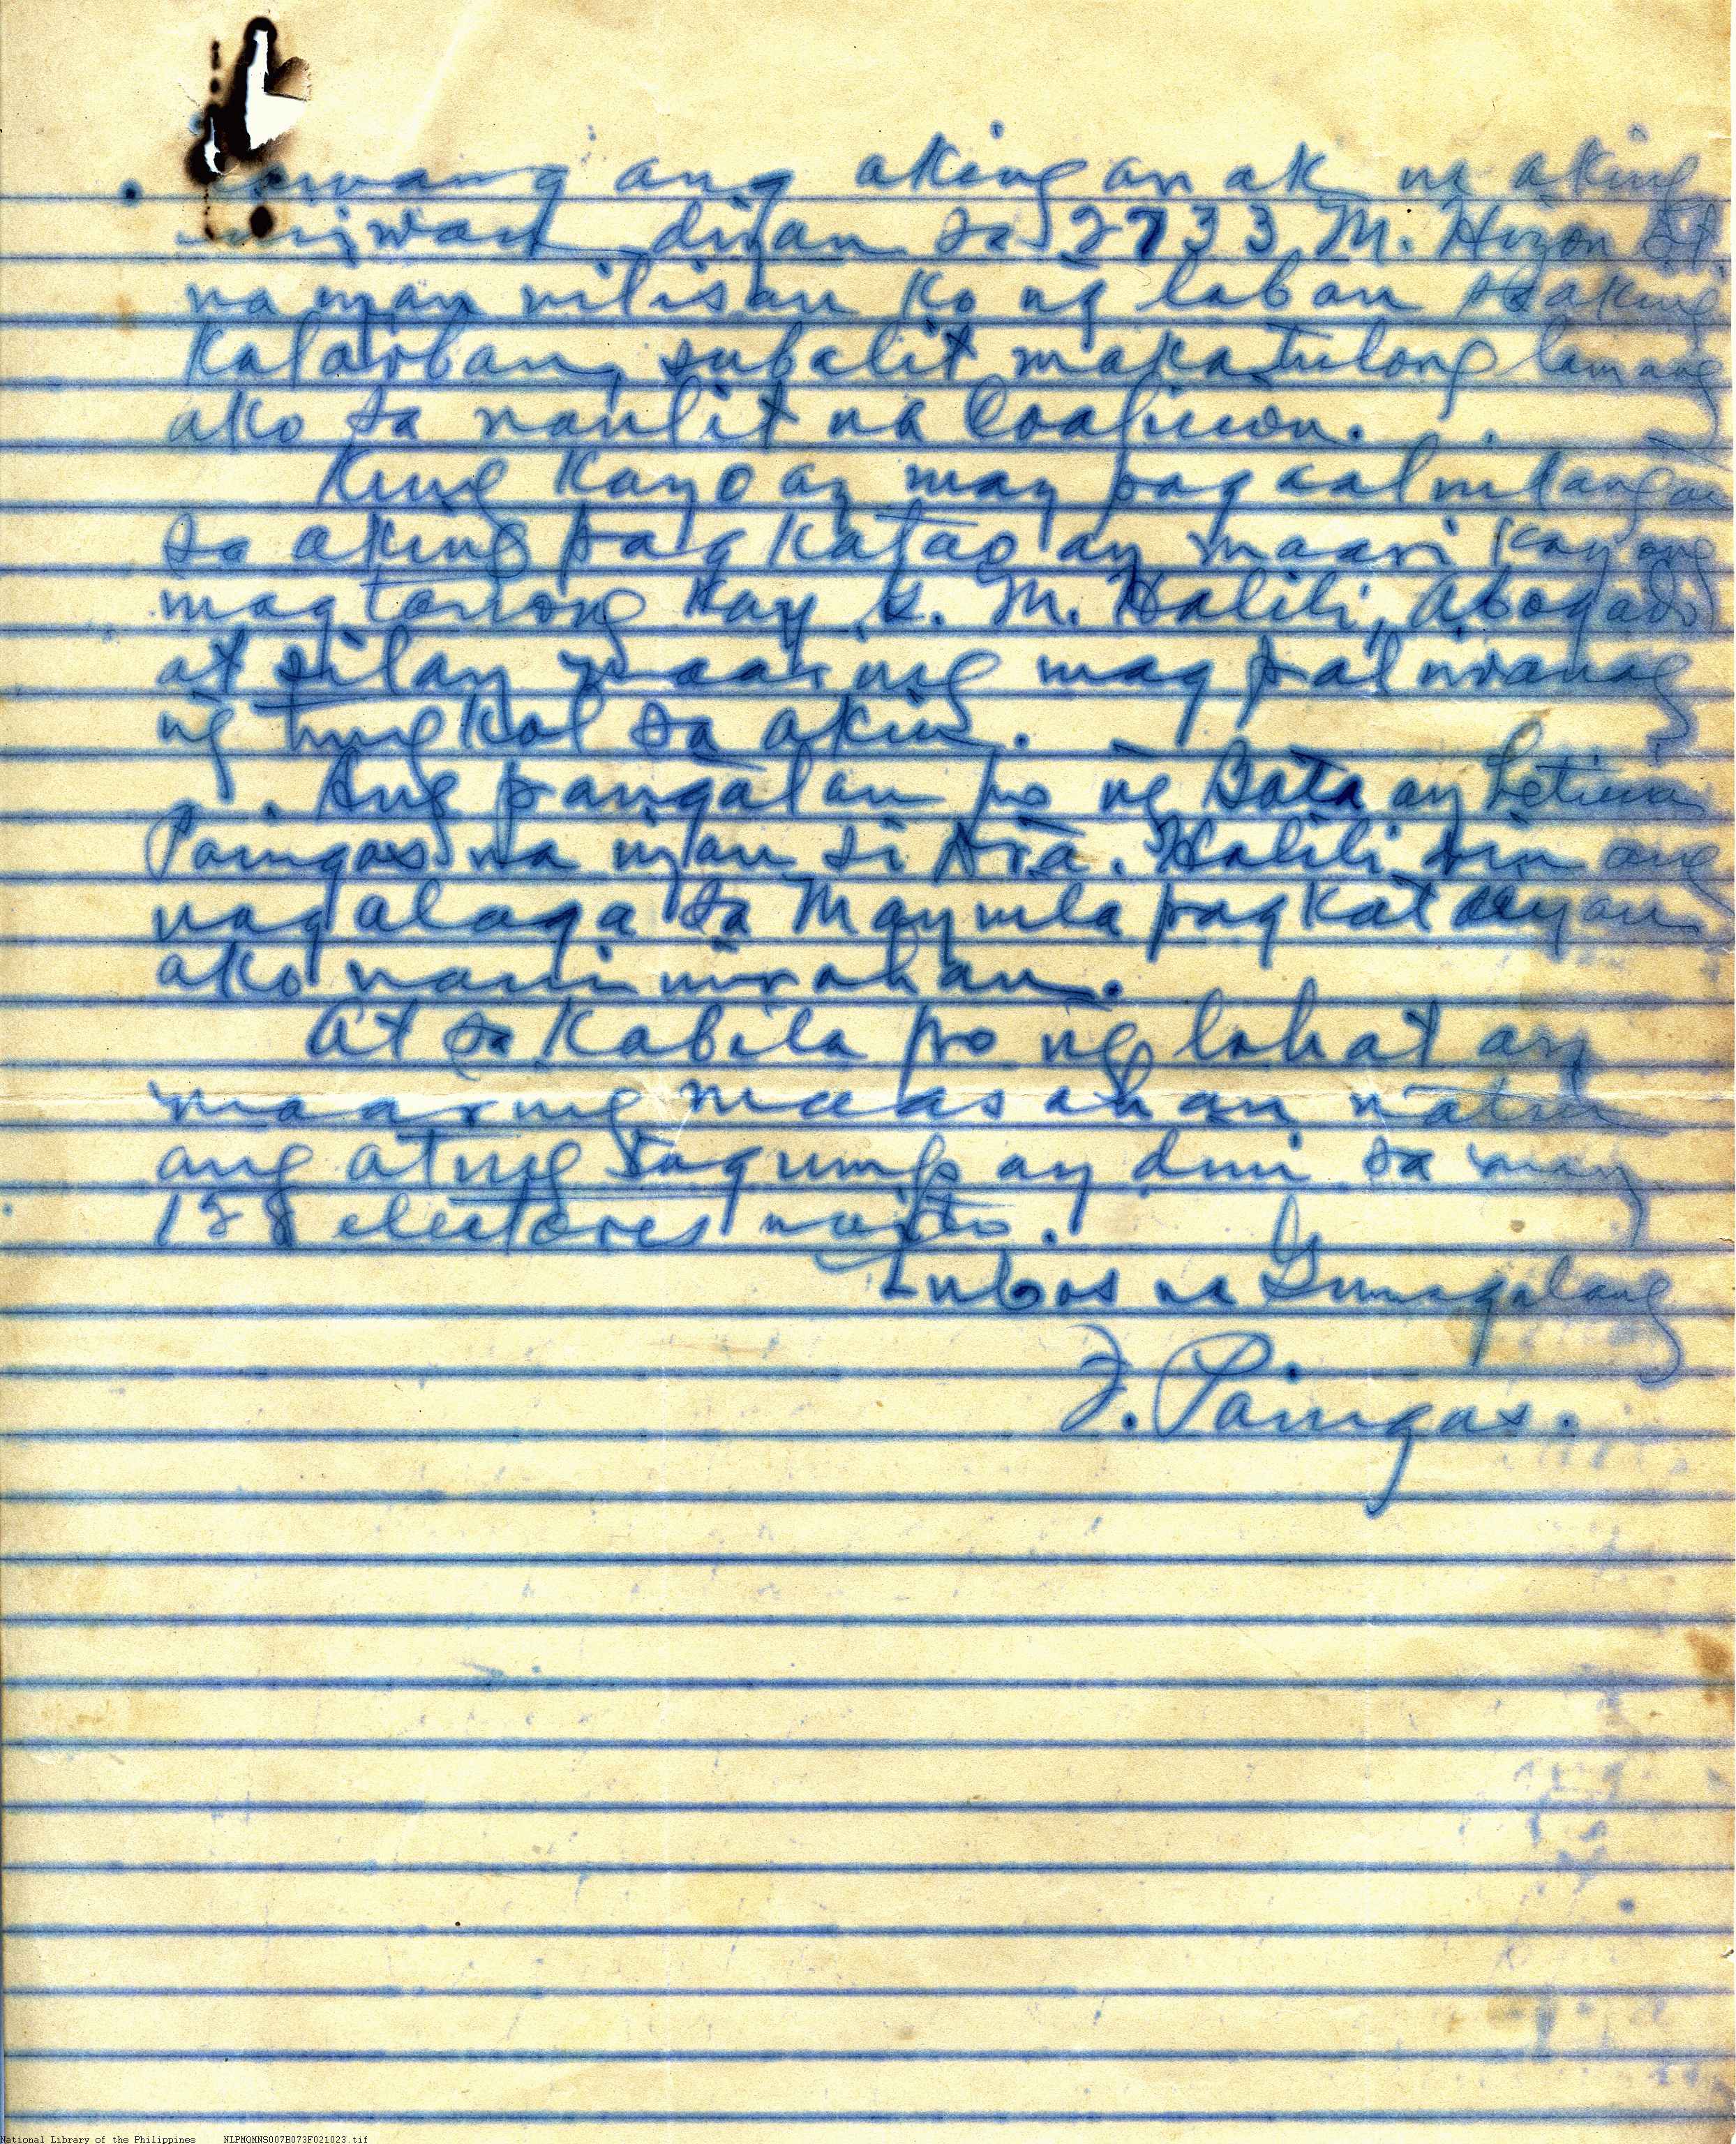 ang aking anak na aking
diyan sa 2733 M. Hizon St.
na niyan nilisan ko ng laban sa aking
kalooban, subalit makatulong lamang
ako sa naulit na Coalicion.
Kung kayo ay may pag aalinlangan
sa aking pagkatao ay maari kayong
magtanong kay S. M. Halili, abogado
at silay maaring magpaliwanag
ng tungkol sa akin.
Ang pangalan po ng Bata ay Leticia
Paingas na niyan si Atta. Halili rin ang
nagalaga sa Maynila pagkat diyan
ako naninirahan.
At sa kabila po ng lahat ay
maaring maasahan natin
ang ating tagumpay dini sa may
128 electores naito.
Lubos na Gumagalang
F. Paingas.
National Library of the Philippines NLPMQMNS007B073F021023.tif